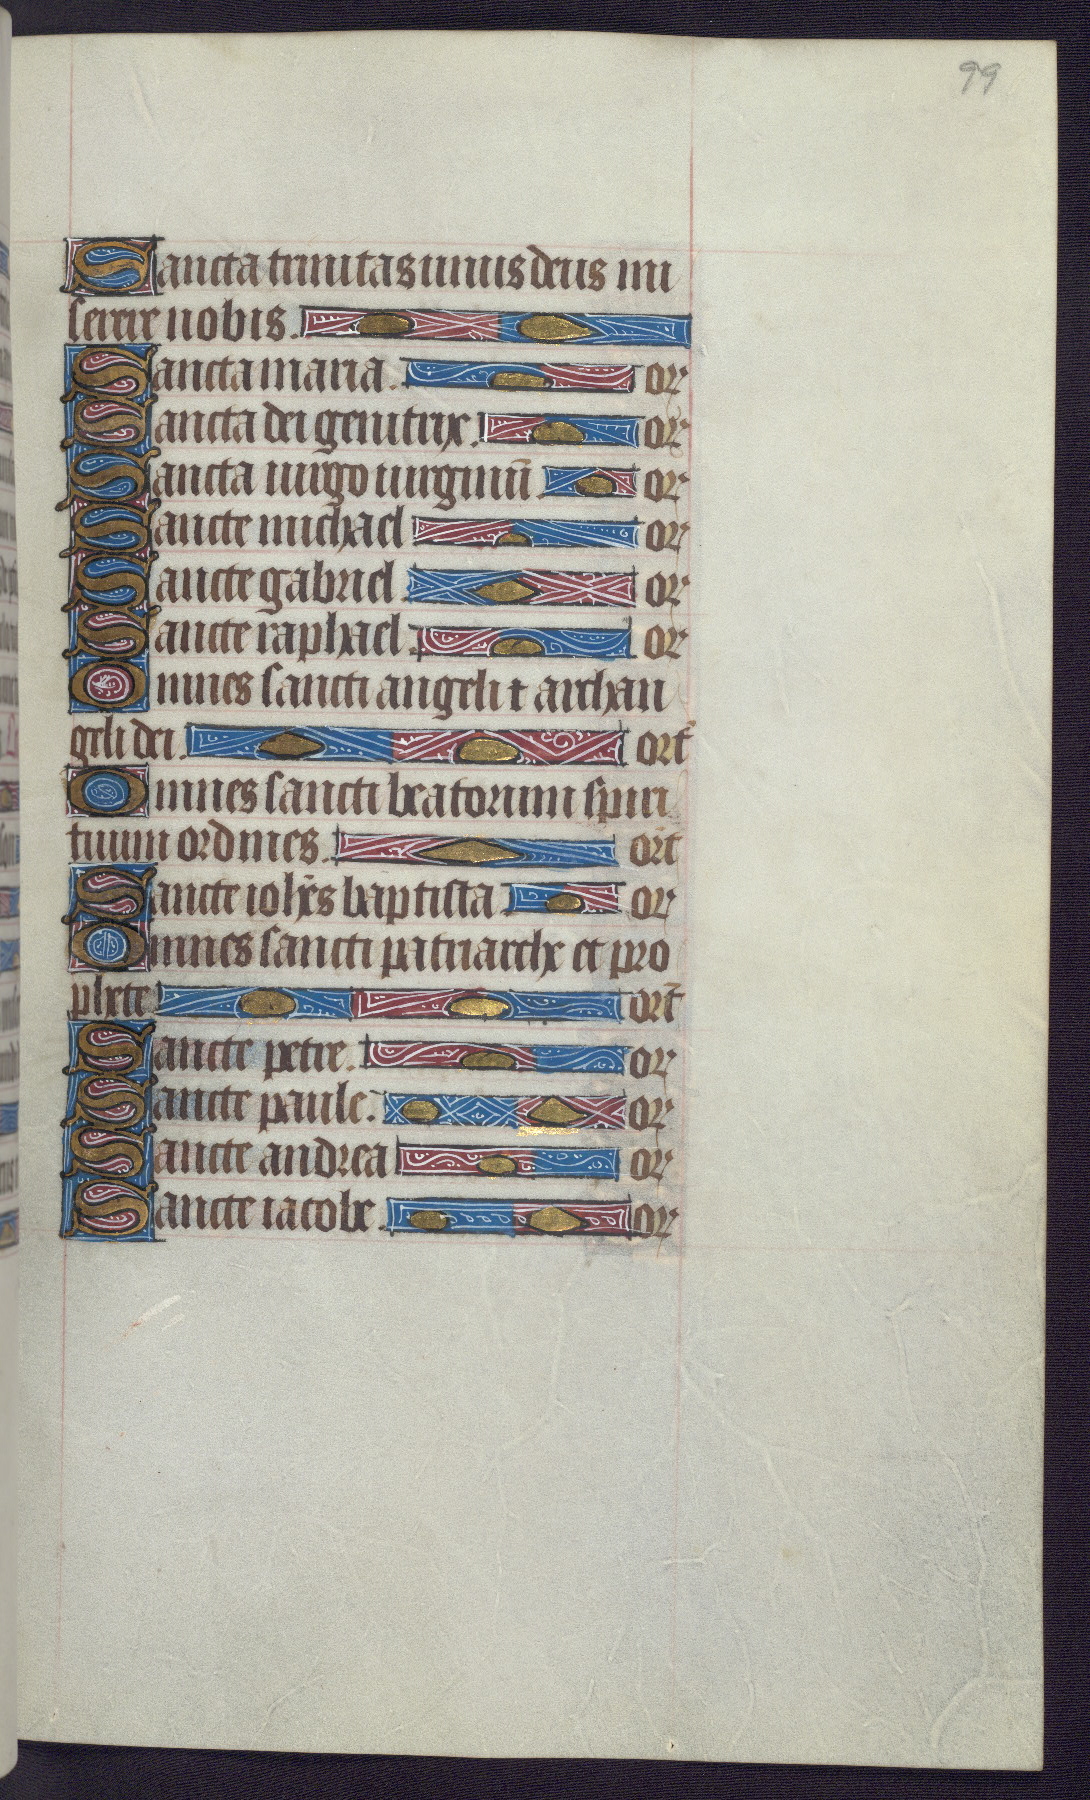 99
Sancta trinitas unus deus mi
serere nobis.
Sancta maria. or
Sancta dei genitrix. or
Sancta uirgo uirginū. or
Sancte michael or
Sancte gabriel. or
Sancte raphael. or
Omnes sancti angeli ⁊ archan
geli dei. ort̄
Omnes sancti beatorum spiri
tuum ordines. ort̄
Sancte ioh̄es baptista. or
Omnes sancti patriarche et pro
phete. ort̄
Sancte petre. or
Sancte paule. or
Sancte andrea or
Sancte iacobe. or